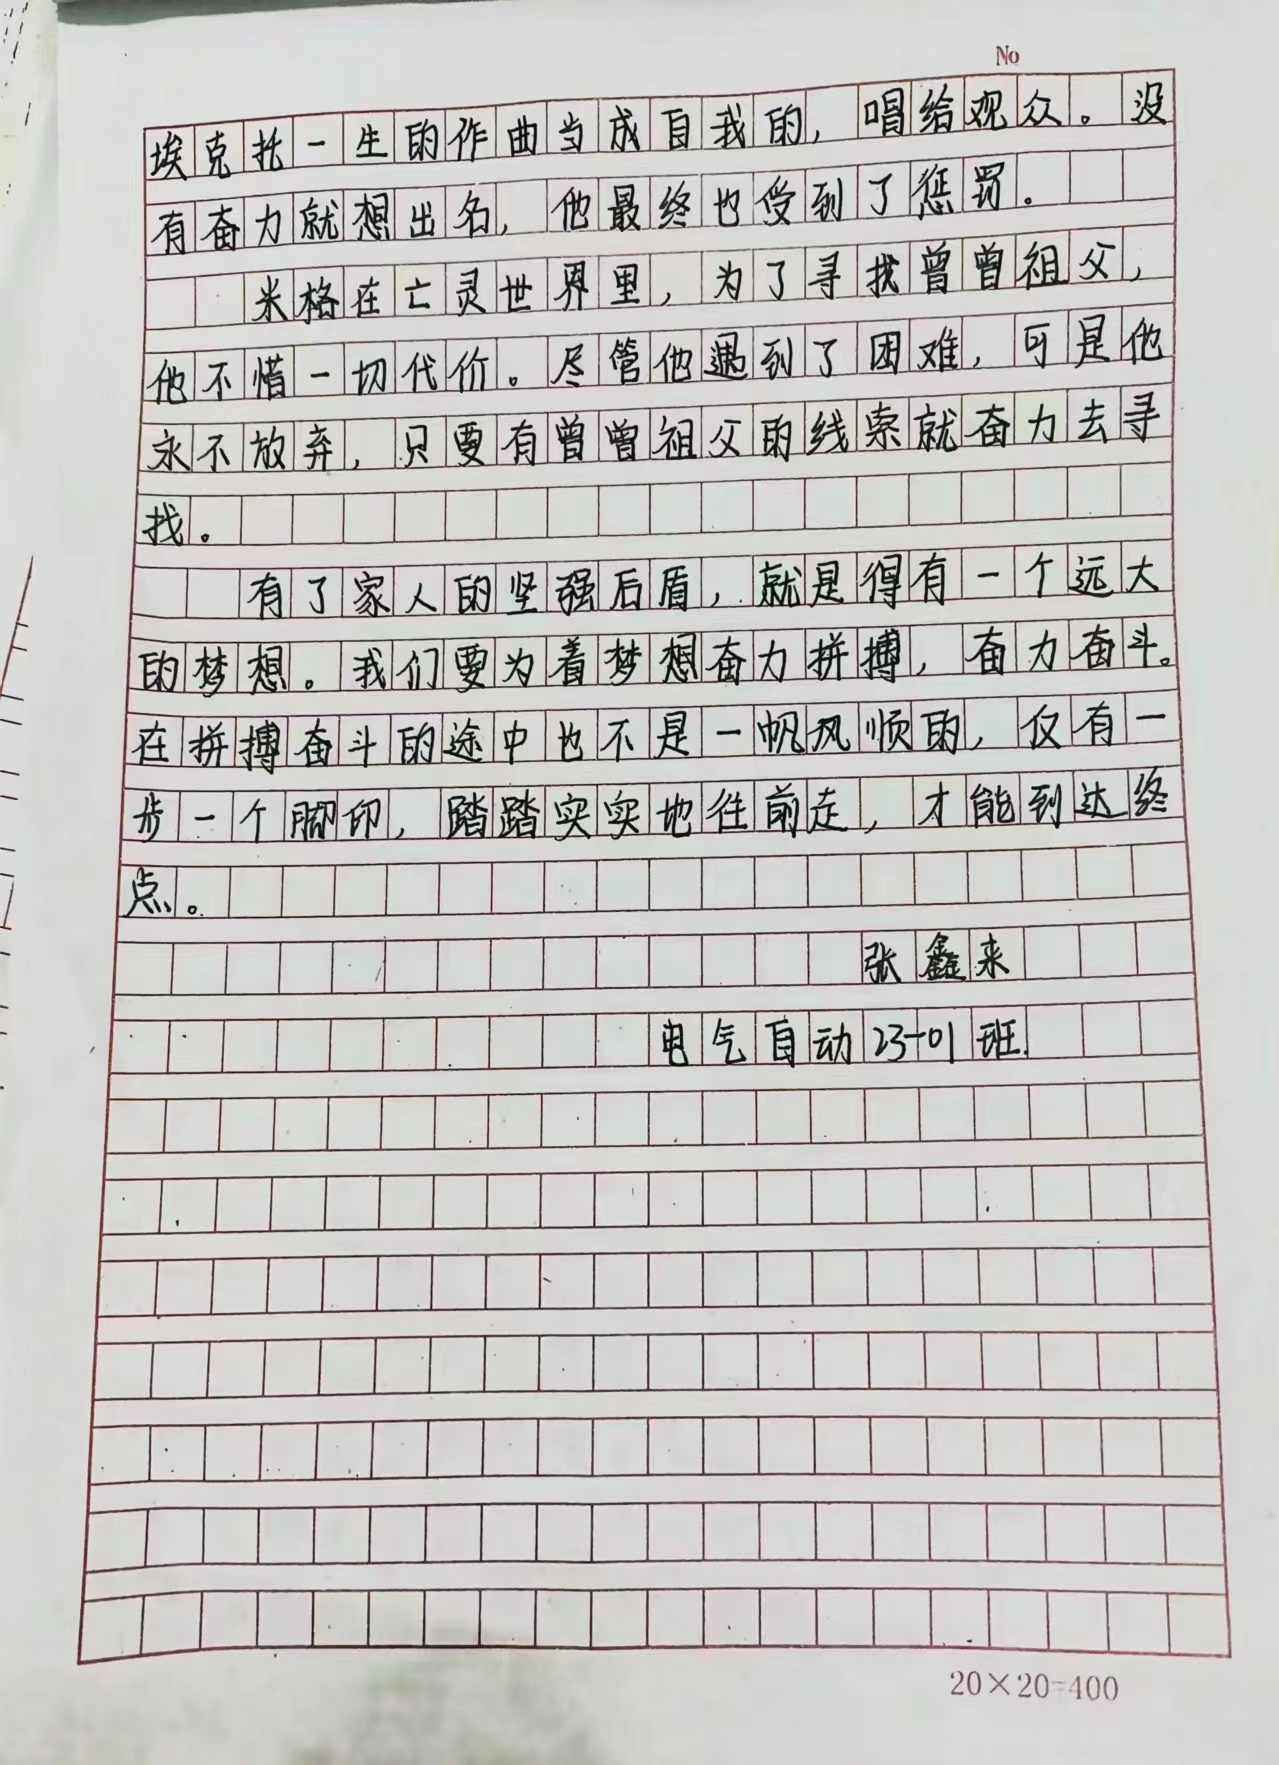 No
埃克托一生的作曲当成自我的，唱给观众。没
有奋力就想出名，他最终也受到了惩罚。
米格在亡灵世界里，为了寻找曾曾祖父，
他不惜一切代价。尽管他遇到了困难，可是他
永不放弃，只要有曾曾祖父的线索就奋力去寻
找。
有了家人的坚强后盾，就是得有一个远大
的梦想。我们要为着梦想奋力拼搏，奋力奋斗。
在拼搏奋斗的途中也不是一帆风顺的，仅有一
步一个脚印，踏踏实实地往前走，才能到达终
点。
张鑫来
电气自动23-01班.
20×20=400